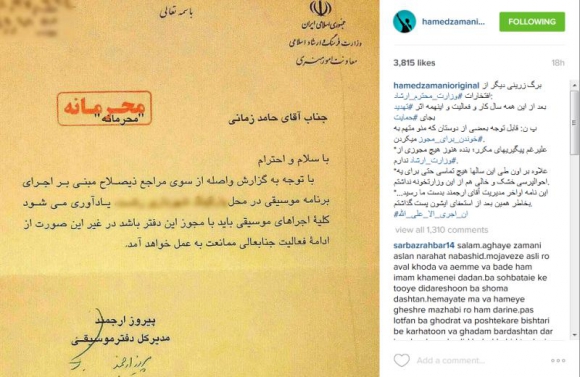 باسمه تعالی
جمهوری اسلامی ایران
وزارت فرهنگ و ارشاد اسلامی
معاونت امور هنری
محرمانه
"محرمانه"
جناب آقای حامد زمانی
با سلام و احترام
با توجه به گزارش واصله از سوی مراجع ذیصلاح مبنی بر اجرای
برنامه موسیقی در محل یادآوری می شود
کلیۀ اجراهای موسیقی باید با مجوز این دفتر باشد در غیر این صورت از
ادامۀ فعالیت جنابعالی ممانعت به عمل خواهد آمد.
پیروز ارجمند
مدیرکل دفتر موسیقی
hamedzamani...
FOLLOWING
3,815 likes
18h
hamedzamanioriginal برگ زرینی دیگر از
افتخارات #وزارت_محترم_ارشاد:
بعد از این همه سال کار و فعالیت و اینهمه اثر #تهدید
بجای #حمایت
پ ن: قابل توجه بعضی از دوستان که منو متهم به
#خوندن_برای_مجوز میکردن.
*علیرغم پیگیریهای مکرر، بنده هنوز هیچ مجوزی از
#وزارت_ارشاد ندارم.
*علاوه بر اون طی این سالها هیچ تماسی حتی برای یه
احوالپرسی خشک و خالی هم از این وزارتخونه نداشتم.
*این نامه اواخر مدیریت آقای ارجمند بدست ما رسید...
بخاطر همین بعد از استعفای ایشون پست گذاشتم.
#ان_اجری_الا_علی_الله
view all 1,310 comments
sarbazrahbar14 salam.aghaye zamani
aslan narahat nabashid.mojaveze asli ro
aval khoda va aemme va bade ham
imam khamenei dadan.ba sohbataie ke
tooye didareshoon ba shoma
dashtan.hemayate ma va hameye
gheshre mazhabi ro ham darine.pas
lotfan ba ghodrat va poshtekare bishtari
be karhatoon va ghadam bardashtan dar
Add a comment...